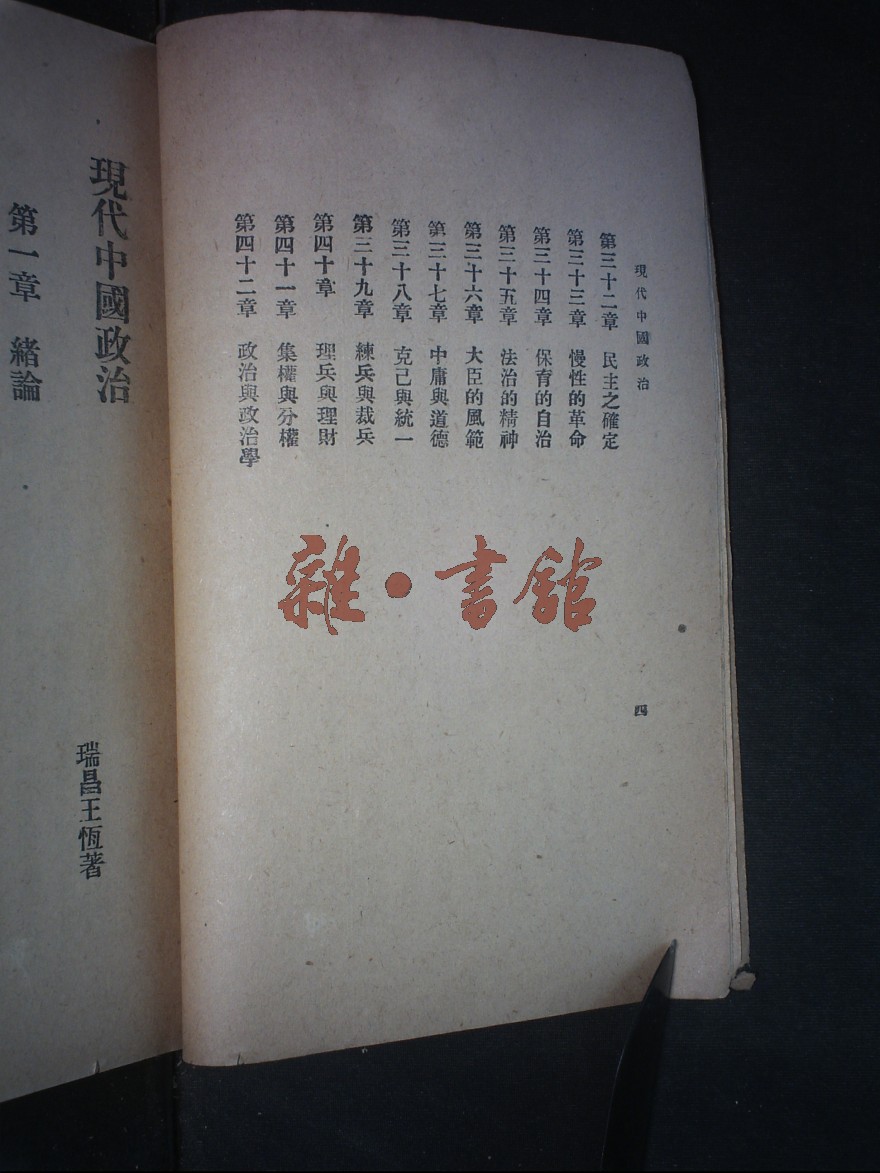 現代中國政治
第三十二章 民主之確定
第三十三章 慢性的革命
第三十四章 保育的自治
第三十五章 法治的精神
第三十六章 大臣的風範
第三十七章 中庸與道德
第三十八章 克己與統一
第三十九章 練兵與裁兵
第四十章 理兵與理財
第四十一章 集權與分權
第四十二章 政治與政治學
四
雜·書館
現代中國政治
瑞昌王恆著
第一章 緒論